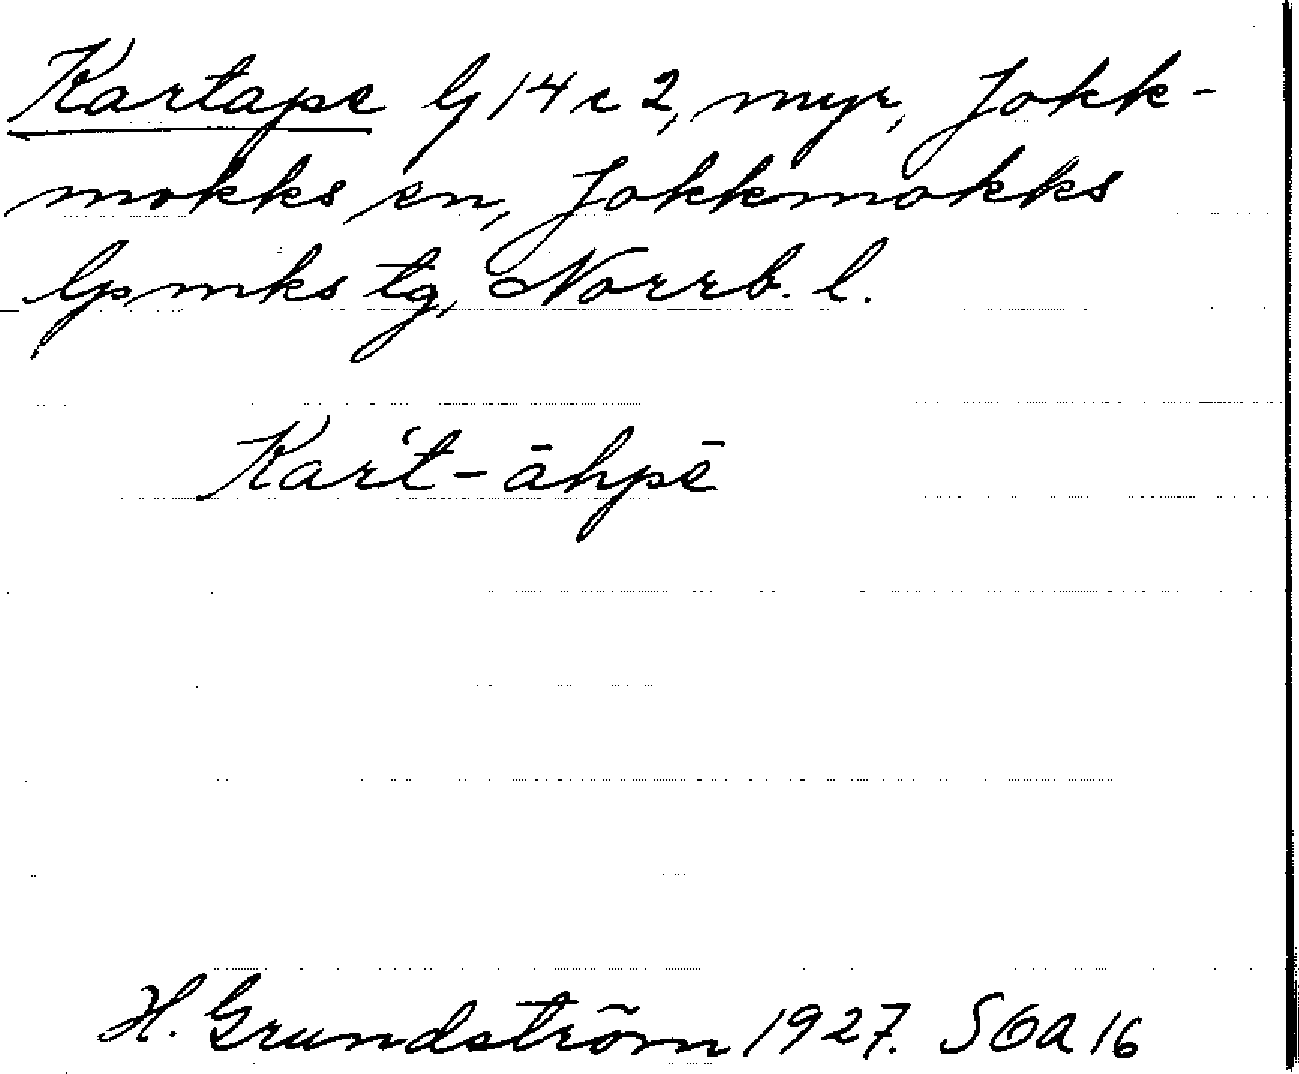 Kartape lj 14 c 2, myr, Jokk-
mokks sn, Jokkmokks
lpmks tg, Norrb. l.
Kar̔t-āhpē
H. Grundström 1927. SOA 16